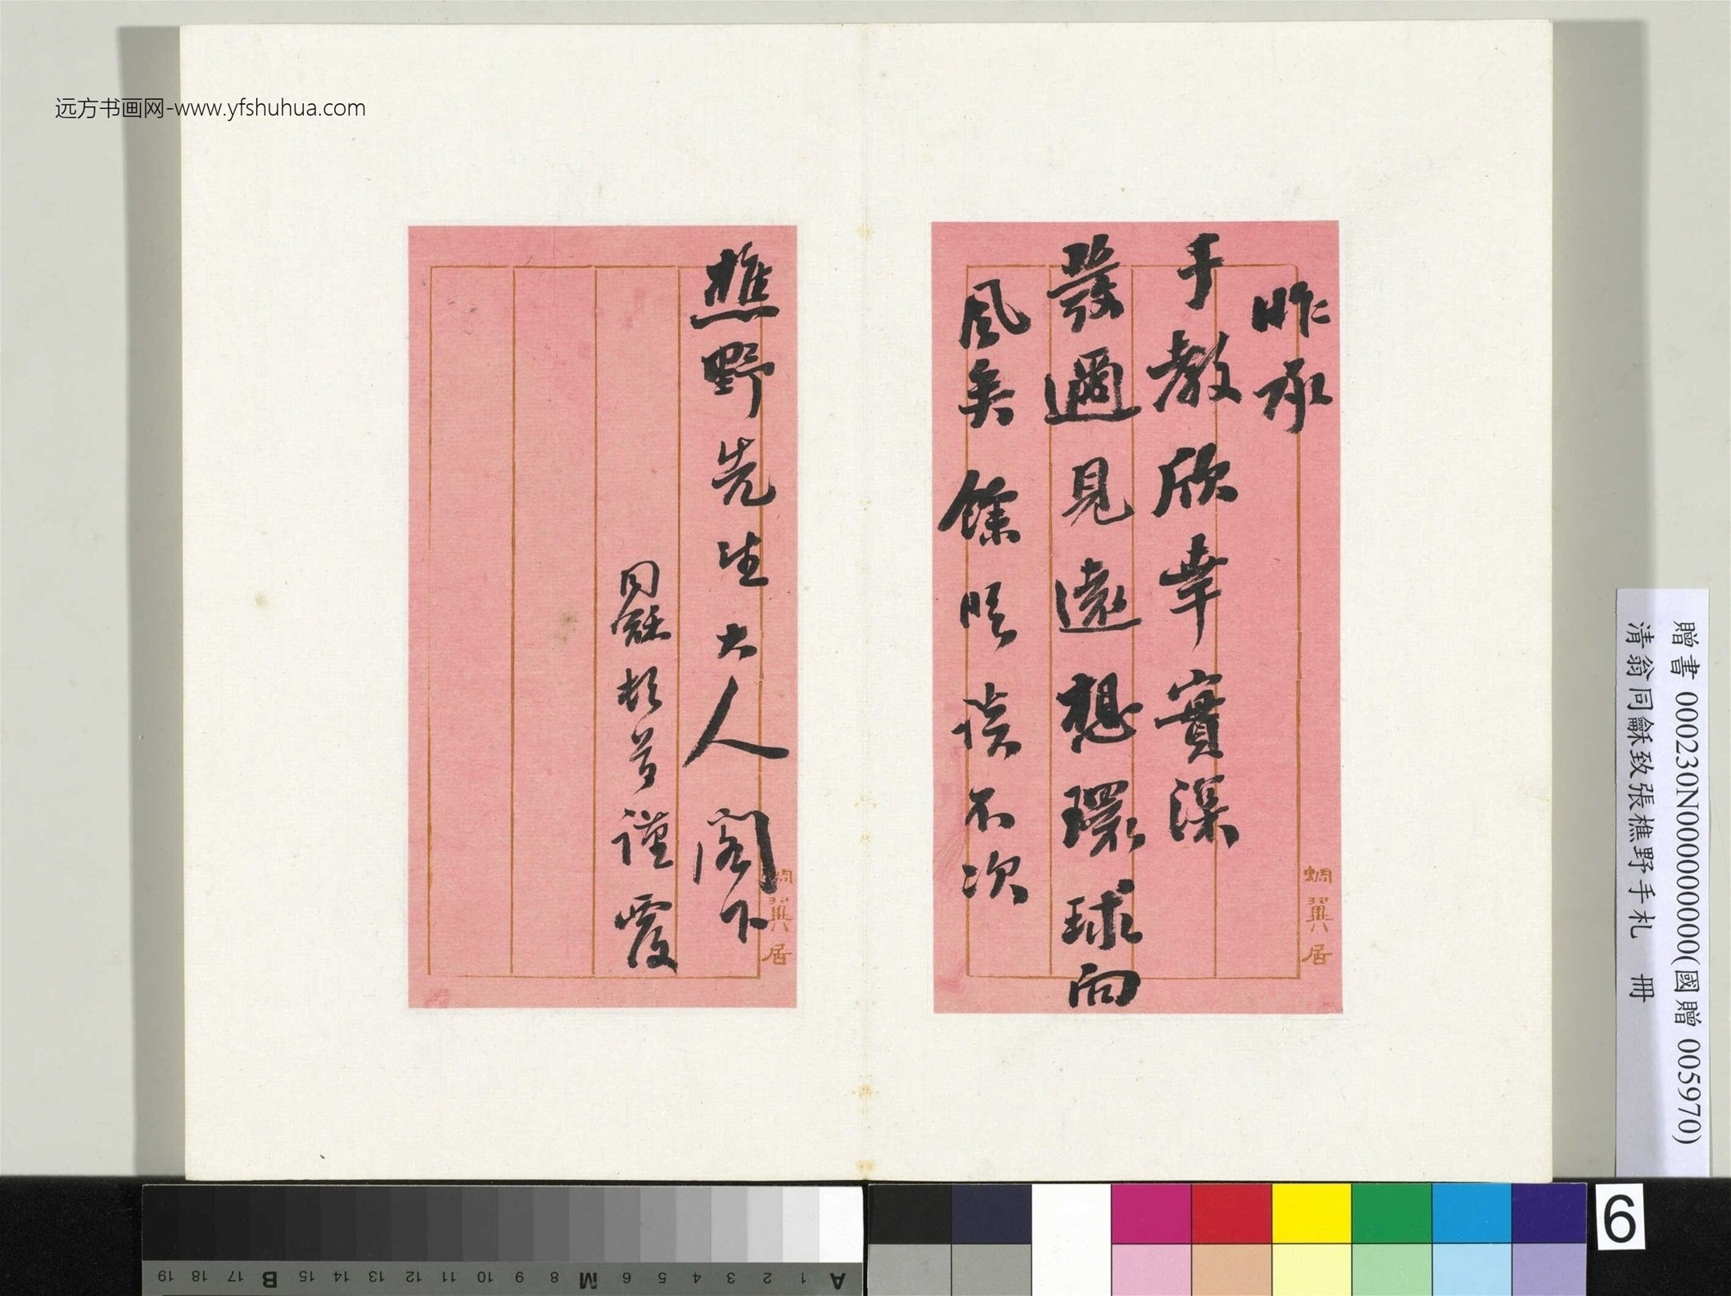 远方书画网-www.yfshuhua.com
昨承
手教欣幸實深
發邇見遠想環球向
風矣餘晤談不次
蜩翼居
樵野先生大人閣下
同龢頓首謹覆
蜩翼居
贈書 000230N000000000(國贈 005970)
清翁同龢致張樵野手札 冊
A 1 2 3 4 5 6 M 8 9 10 11 12 13 14 15 B 17 18 19
6